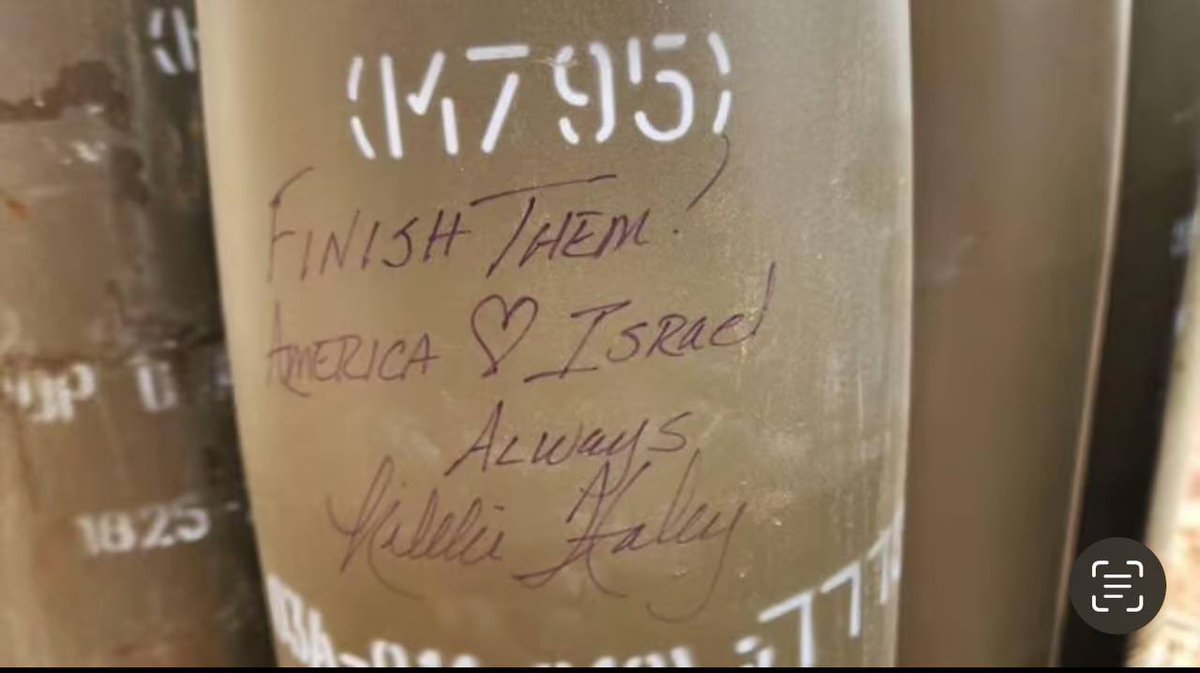 (M795)
FINISH THEM!
AMERICA ♡ ISRael
ALways
Nikki Haley
1825